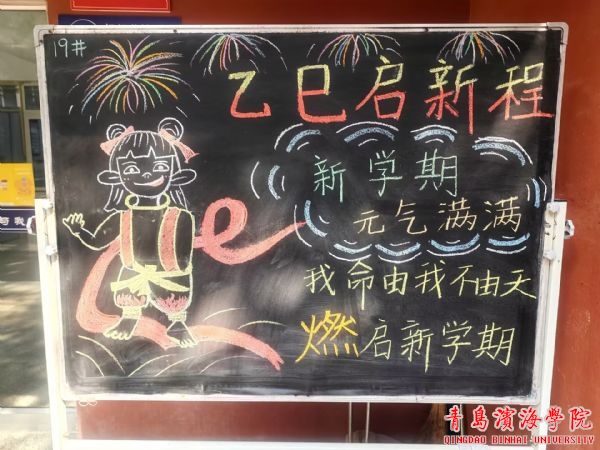 19#
乙巳启新程
新学期
元气满满
我命由我不由天
燃启新学期
与我
青島濱海學院
QINGDAO BINHAI UNIVERSITY